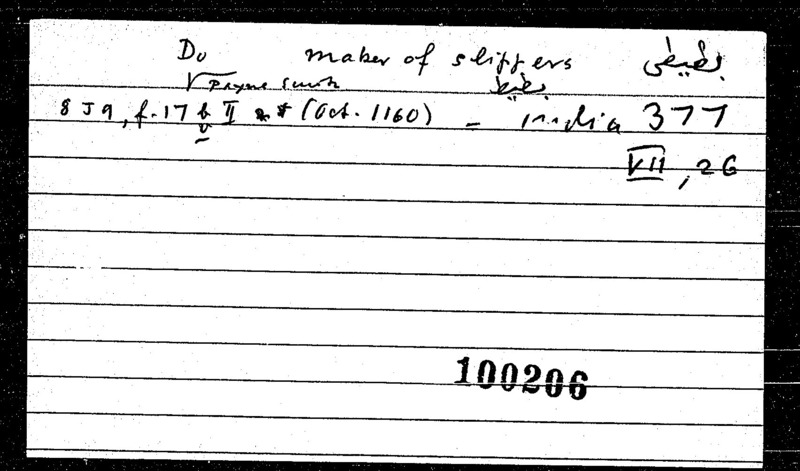 Do maker of slippers بطيطى
√ Payne Smith بطيط
8 J 9, f. 17 b II (Oct. 1160) – India 377
v
VII, 26
100206